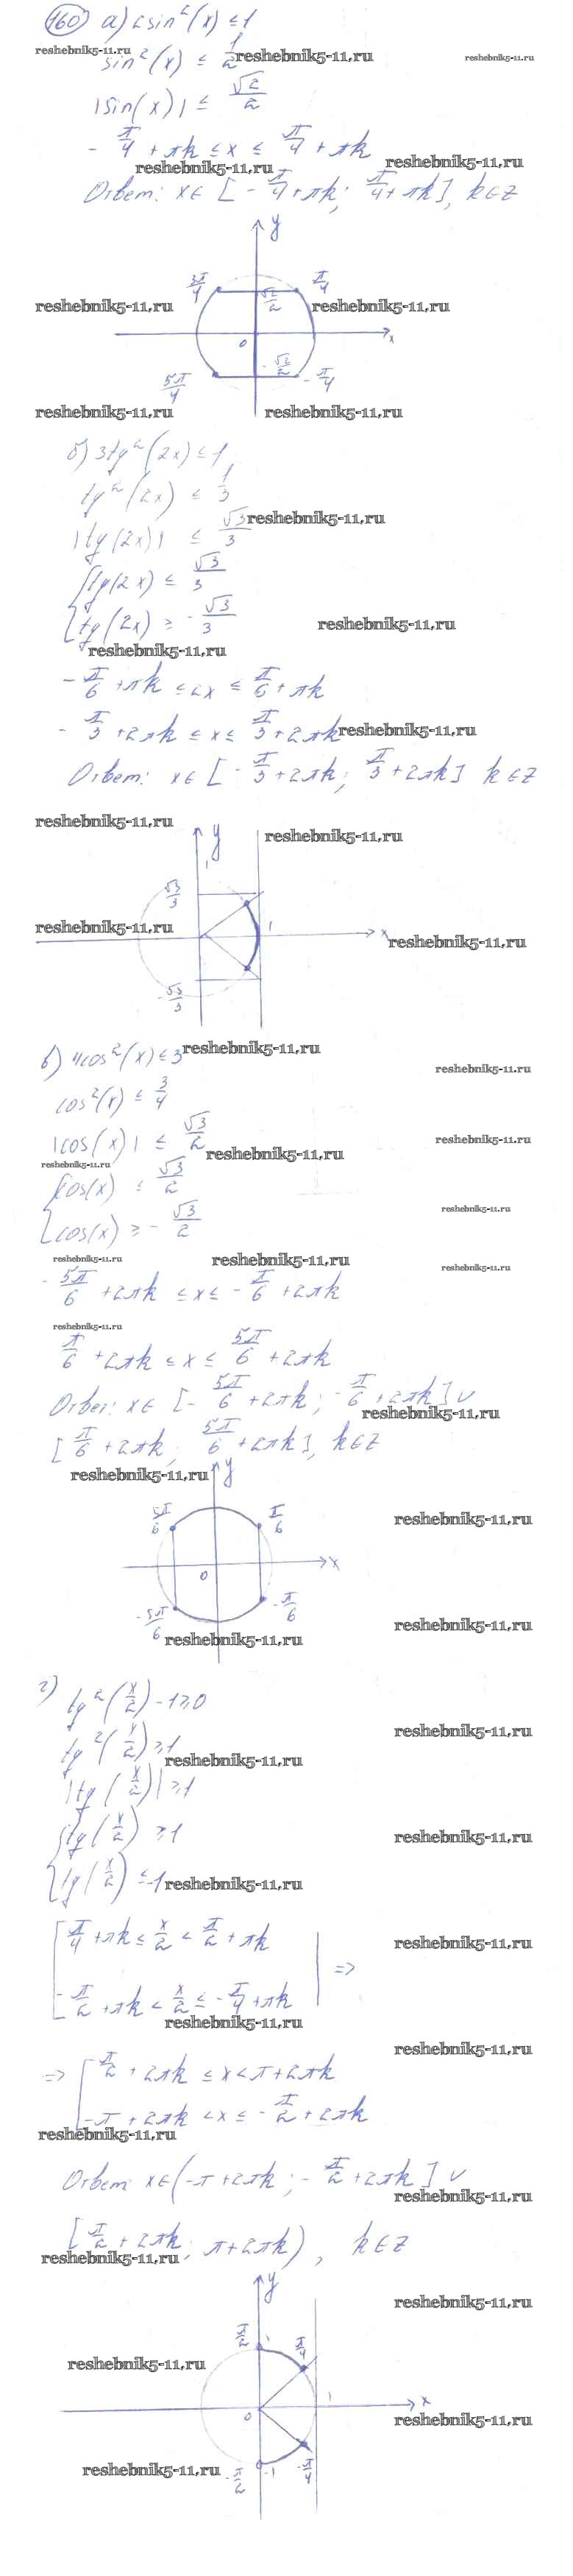 160 а) 2sin²(x) ≤ 1
reshebnik5-11.ru
sin²(x) ≤ 1/2
reshebnik5-11.ru
reshebnik5-11.ru
|sin(x)| ≤ √2/2
- π/4 + πk ≤ x ≤ π/4 + πk
reshebnik5-11.ru
reshebnik5-11.ru
Ответ: x∈ [ - π/4 + πk; π/4 + πk ], k∈Z
y
3π/4
π/4
reshebnik5-11.ru
√2/2
reshebnik5-11.ru
0
x
-√2/2
5π/4
-π/4
reshebnik5-11.ru
reshebnik5-11.ru
б) 3tg²(2x) ≤ 1
tg²(2x) ≤ 1/3
|tg(2x)| ≤ √3/3
reshebnik5-11.ru
{ tg(2x) ≤ √3/3
tg(2x) ≥ - √3/3
reshebnik5-11.ru
reshebnik5-11.ru
- π/6 + πk ≤ 2x ≤ π/6 + πk
- π/3 + 2πk ≤ x ≤ π/3 + 2πk
reshebnik5-11.ru
Ответ: x∈ [ - π/3 + 2πk; π/3 + 2πk ] k∈Z
reshebnik5-11.ru
y
reshebnik5-11.ru
1
√3/3
reshebnik5-11.ru
1
x
reshebnik5-11.ru
-√3/3
в) 4cos²(x) ≤ 3
reshebnik5-11.ru
reshebnik5-11.ru
cos²(x) ≤ 3/4
|cos(x)| ≤ √3/2
reshebnik5-11.ru
reshebnik5-11.ru
reshebnik5-11.ru
{ cos(x) ≤ √3/2
cos(x) ≥ - √3/2
reshebnik5-11.ru
reshebnik5-11.ru
reshebnik5-11.ru
reshebnik5-11.ru
- 5π/6 + 2πk ≤ x ≤ - π/6 + 2πk
reshebnik5-11.ru
π/6 + 2πk ≤ x ≤ 5π/6 + 2πk
Ответ: x∈ [ - 5π/6 + 2πk; - π/6 + 2πk ] ∪
reshebnik5-11.ru
[ π/6 + 2πk; 5π/6 + 2πk ], k∈Z
reshebnik5-11.ru
y
5π/6
π/6
reshebnik5-11.ru
0
x
-5π/6
-π/6
reshebnik5-11.ru
reshebnik5-11.ru
г) tg²(x/2) - 1 ≥ 0
reshebnik5-11.ru
tg²(x/2) ≥ 1
reshebnik5-11.ru
|tg(x/2)| ≥ 1
{ tg(x/2) ≥ 1
reshebnik5-11.ru
tg(x/2) ≤ -1
reshebnik5-11.ru
[ π/4 + πk ≤ x/2 < π/2 + πk
reshebnik5-11.ru
=>
- π/2 + πk < x/2 ≤ - π/4 + πk
reshebnik5-11.ru
reshebnik5-11.ru
=> [ π/2 + 2πk ≤ x < π + 2πk
- π + 2πk < x ≤ - π/2 + 2πk
reshebnik5-11.ru
Ответ: x∈ ( -π + 2πk; - π/2 + 2πk ] ∪
reshebnik5-11.ru
[ π/2 + 2πk; π + 2πk ), k∈Z
reshebnik5-11.ru
y
reshebnik5-11.ru
π/2
1
π/4
reshebnik5-11.ru
0
1
x
reshebnik5-11.ru
reshebnik5-11.ru
-π/2
-1
-π/4